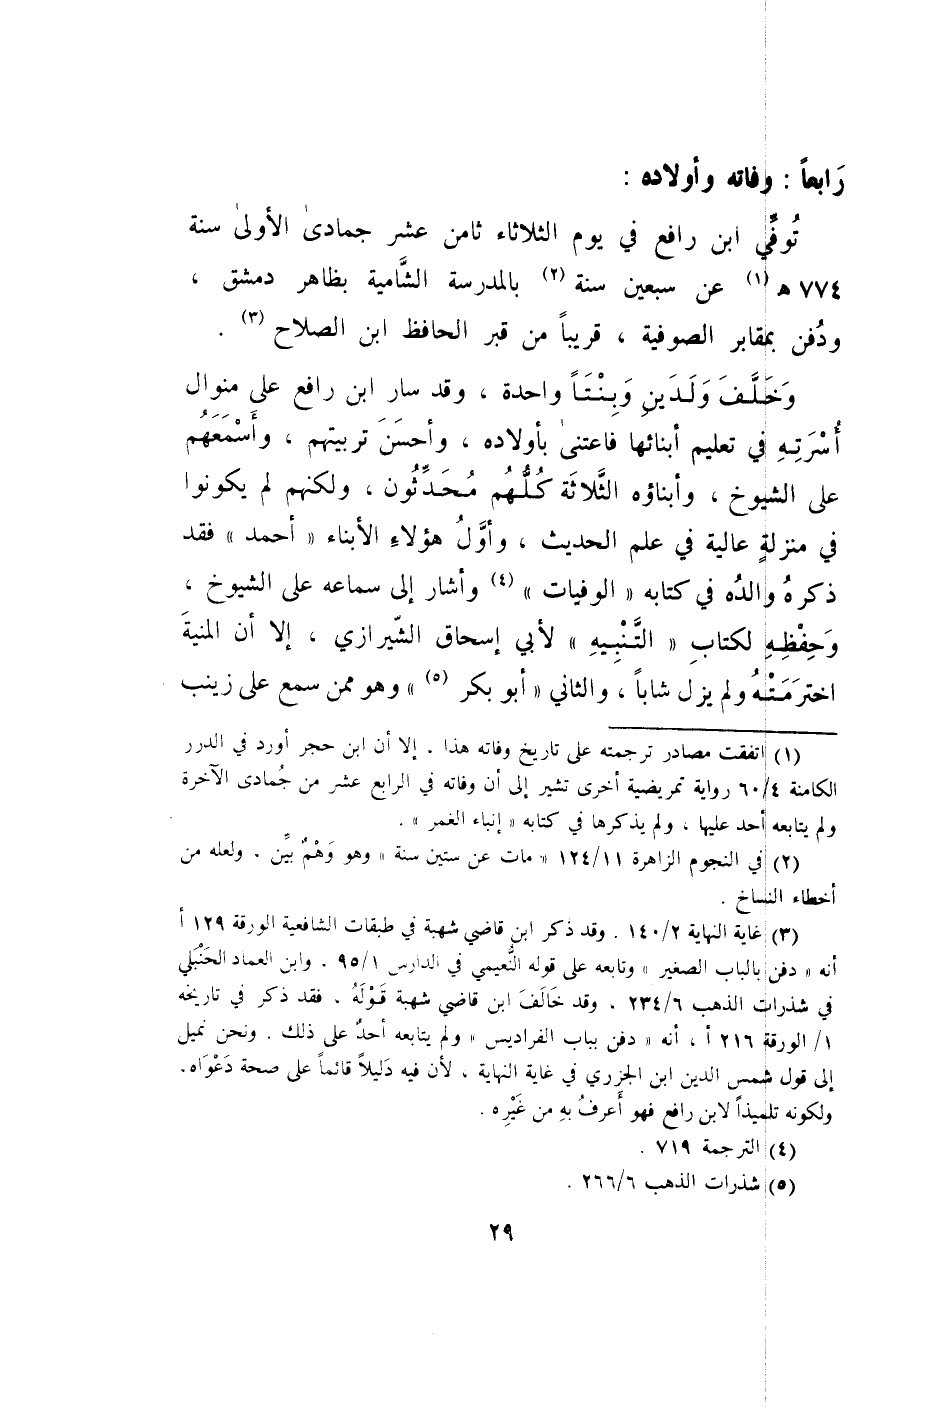 رَابعاً : وفاته وأولاده :
تُوفِّي ابن رافع في يوم الثلاثاء ثامن عشر جمادىٰ الأولىٰ سنة
٧٧٤ هـ (١) عن سبعين سنة (٢) بالمدرسة الشَّامية بظاهر دمشق ،
ودُفن بمقابر الصوفية ، قريباً من قبر الحافظ ابن الصلاح (٣) .
وَخَلَّفَ وَلَدَينِ وَبِنْتَاً واحدة ، وقد سار ابن رافع على منوال
أُسْرَتِهِ في تعليم أبنائها فاعتنىٰ بأولاده ، وأحسَنَ تربيتهم ، وأَسْمَعَهُم
على الشيوخ ، وأبناؤه الثَّلاثَة كُلُّهُم مُحَدِّثُون ، ولكنهم لم يكونوا
في منزلةٍ عالية في علم الحديث ، وأوَّلُ هؤلاءِ الأبناء « أحمد » فقد
ذكرهُ والدُه في كتابه « الوفيات » (٤) وأشار إلى سماعه على الشيوخ ،
وَحِفْظِهِ لكتابِ « التَّنْبِيهِ » لأبي إسحاق الشّيرازي ، إلا أن المنيةَ
اخترَمَتْهُ ولم يزل شاباً ، والثاني « أبو بكر (٥) » وهو ممن سمع على زينب
(١) اتفقت مصادر ترجمته على تاريخ وفاته هذا . إلا أن ابن حجر أورد في الدرر
الكامنة ٦٠/٤ رواية تمريضية أخرى تشير إلى أن وفاته في الرابع عشر من جُمادى الآخرة
ولم يتابعه أحد عليها ، ولم يذكرها في كتابه « إنباء الغمر » .
(٢) في النجوم الزاهرة ١٢٤/١١ « مات عن ستين سنة » وهو وَهْمٌ بيِّن . ولعله من
أخطاء النساخ .
(٣) غاية النهاية ١٤٠/٢ . وقد ذكر ابن قاضي شهبة في طبقات الشافعية الورقة ١٢٩ أ
أنه « دفن بالباب الصغير » وتابعه على قوله النُّعيمي في الدارس ٩٥/١ . وابن العماد الحَنْبَلي
في شذرات الذهب ٢٣٤/٦ . وقد خَالَفَ ابن قاضي شهبة قَوْلَهُ . فقد ذكر في تاريخه
١/ الورقة ٢١٦ أ ، أنه « دفن بباب الفراديس » ولم يتابعه أحدٌ على ذلك . ونحن نميل
إلى قول شمس الدين ابن الجزري في غاية النهاية ، لأن فيه دَليلاً قائماً على صحة دَعْوَاه.
ولكونه تلميذاً لابن رافع فهو أَعرفُ بهِ من غَيْرِه .
(٤) الترجمة ٧١٩ .
(٥) شذرات الذهب ٢٦٦/٦ .
٢٩